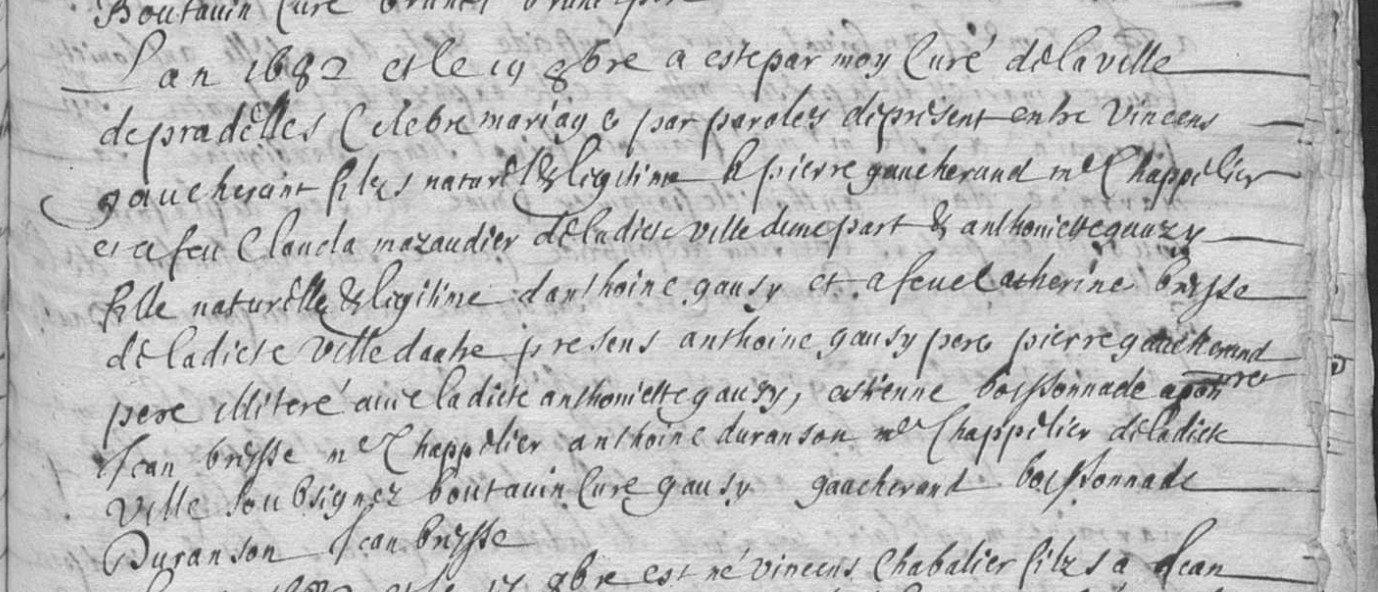 Boutavin Curé
Lan 1682 et le 19 8bre a este par moy Curé de la ville
de pradelles Celebre mariage par paroles de present entre Vincens
gaucherant filzs naturel & legitime a pierre gaucherand me Chappelier
et a feu Clauda mazaudier de ladicte ville dune part & anthoniette gauzy
fille naturelle & legitime danthoine gausy et a feue Catherine brysse
de ladicte ville dautre presens anthoine gausy pere pierre gaucherand
pere illiteré avec ladicte anthoniette gauzy, estienne boissonnade apotre
Jean brysse me Chappelier anthoine duranson me Chappelier de ladicte
ville soubsignez boutavin Cure gausy gaucherand boissonnade
Duranson Jean brysse
8bre est né vincens Chabalier filzs a Jean